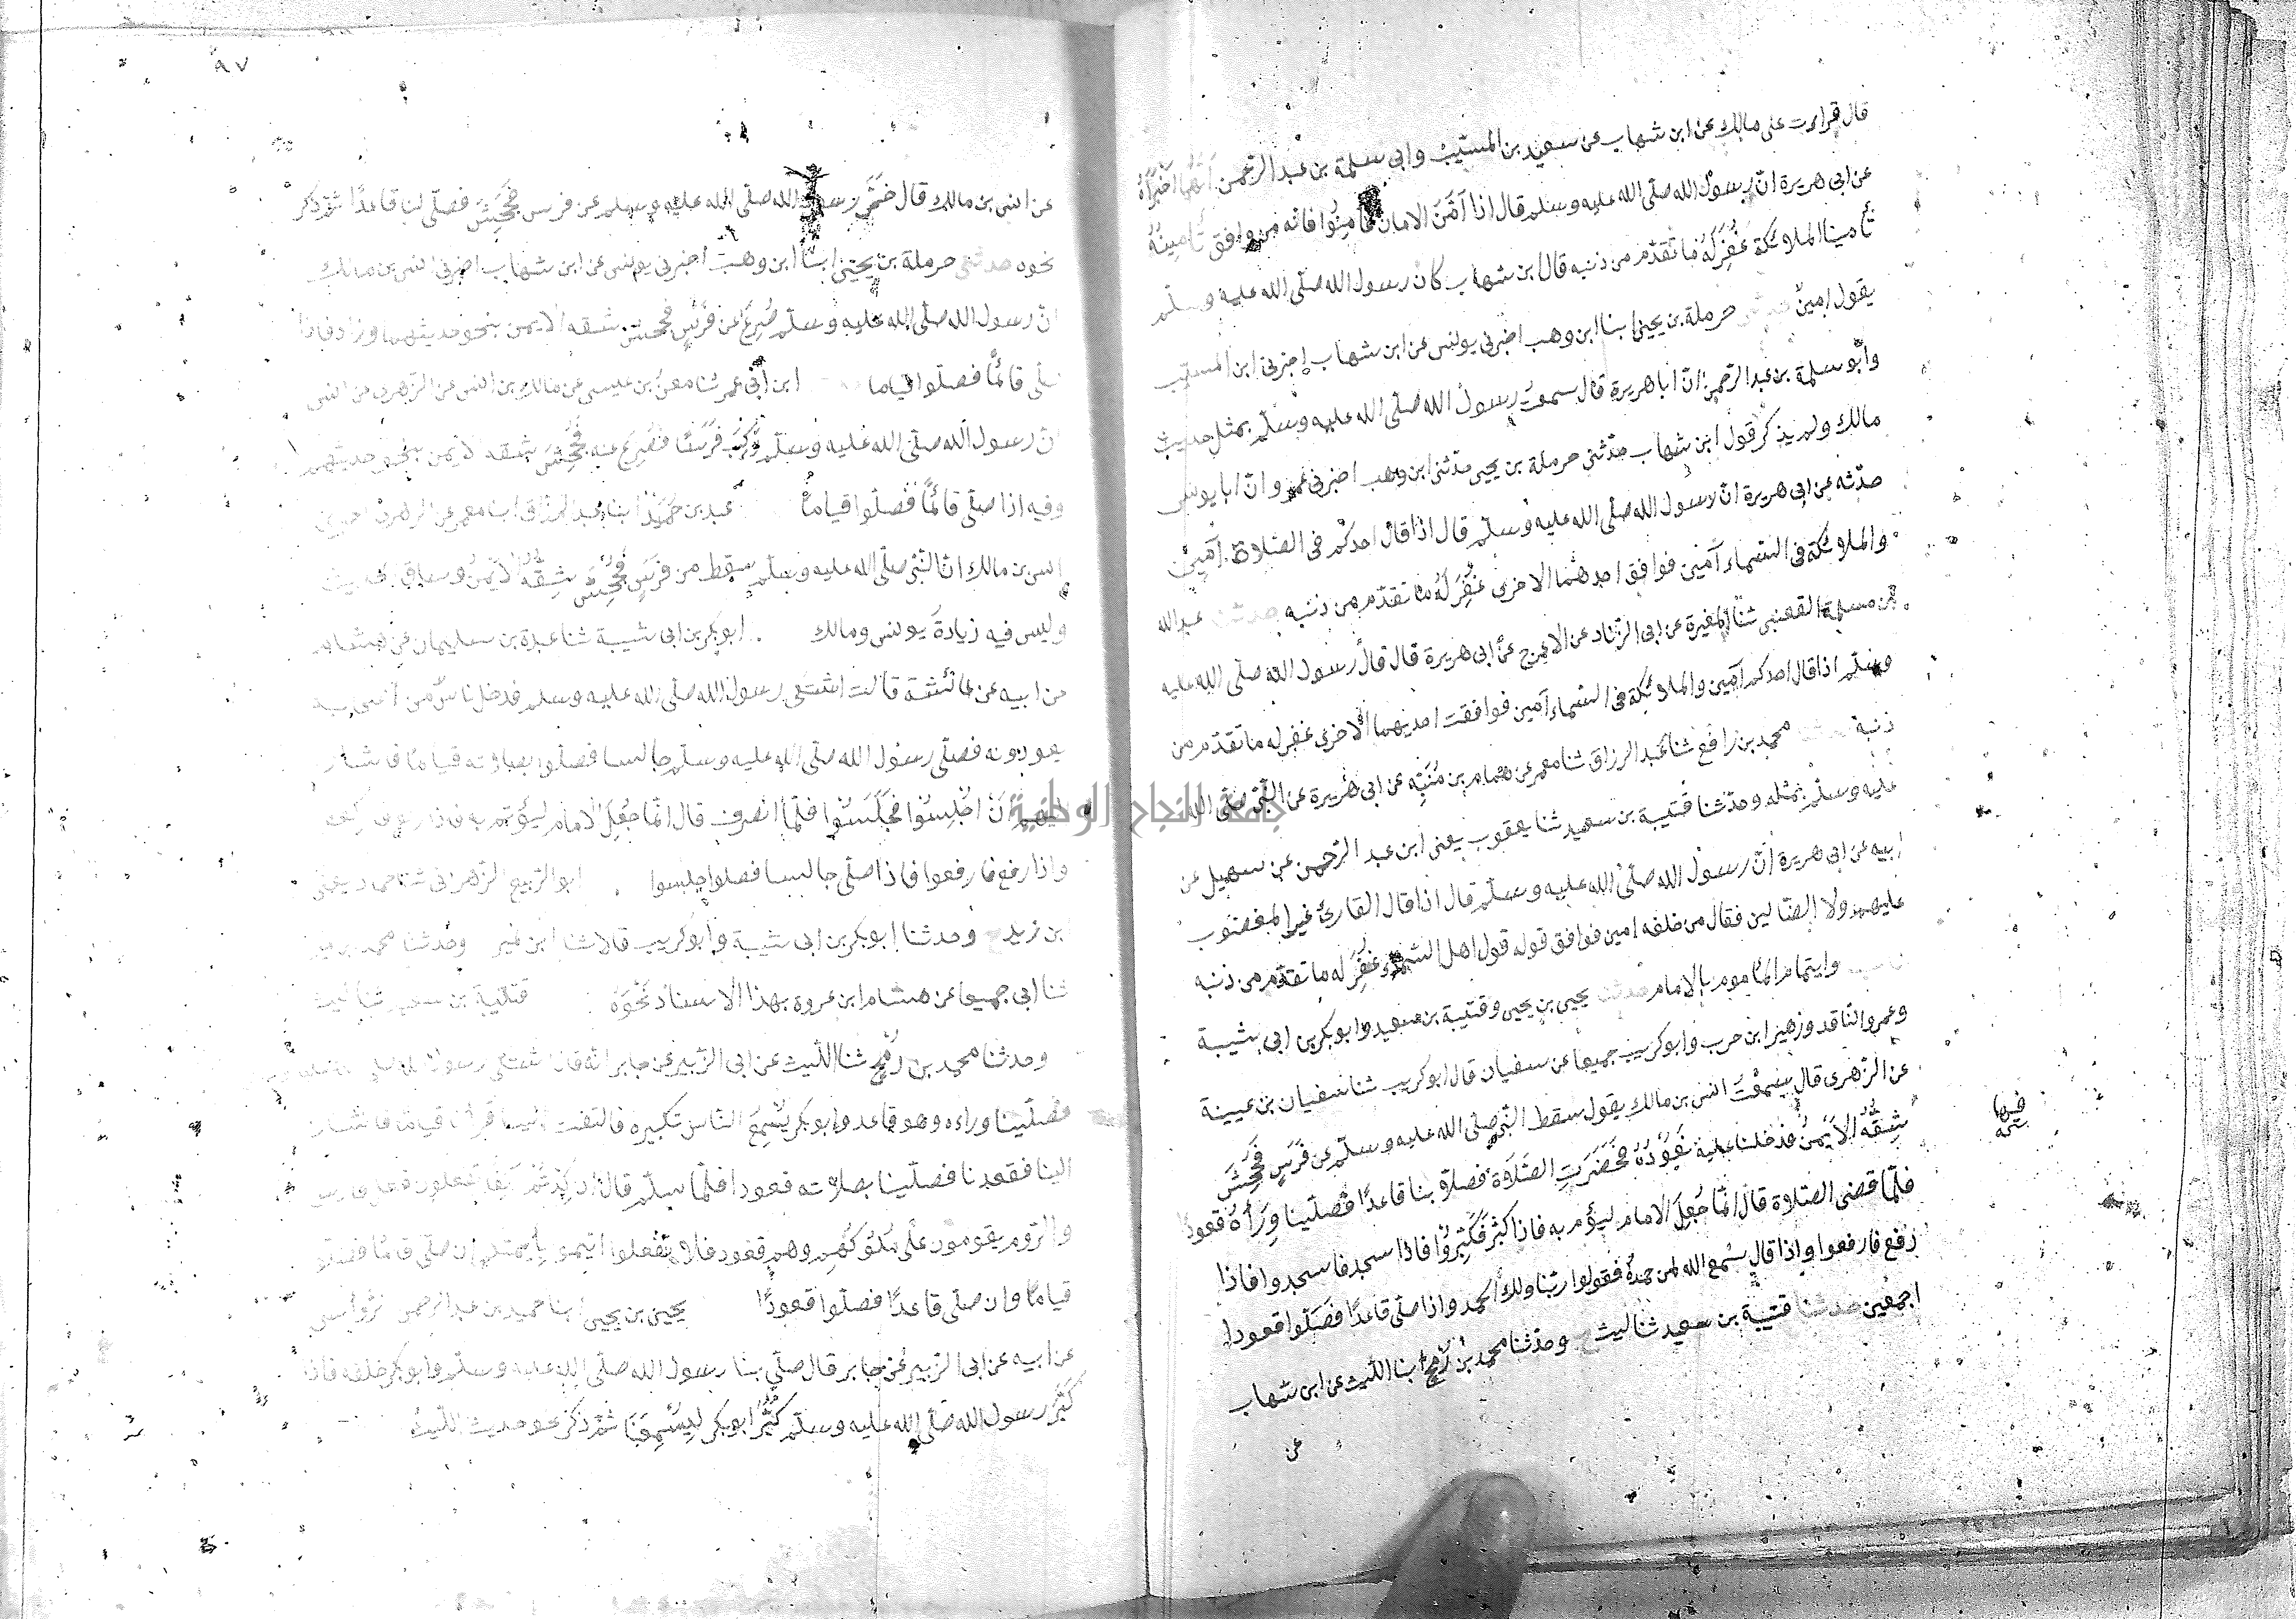 قال قراءت على مالك عن ابن شهاب عن سعيد بن المسيب وابي سلمة بن عبد الرحمن انهما اخبراه
عن ابي هريرة ان رسول الله صلى الله عليه وسلم قال اذا آمن الامام فامنوا فانه من وافق تامينه
تأمين الملائكة غفر له ما تقدم من ذنبه قال ابن شهاب كان رسول الله صلى الله عليه وسلم
يقول امين حرملة بن يحيى ابنا ابن وهب اخبرني يونس عن ابن شهاب اخبرني ابن المسيب
وابو سلمة بن عبد الرحمن ان ابا هريرة قال سمعت رسول الله صلى الله عليه وسلم بمثل حديث
مالك ولم يذكر قول ابن شهاب حدثني حرملة بن يحيى حدثني ابن وهب اخبرني عمرو ان ابا يونس
حدثه عن ابي هريرة ان رسول الله صلى الله عليه وسلم قال اذا قال احدكم في الصلاة آمين
والملائكة في السماء آمين فوافق احدهما الاخرى غفر له ما تقدم من ذنبه حدثنا عبد الله
بن مسلمة القعنبي ثنا المغيرة عن ابي الزناد عن الاعرج عن ابي هريرة قال قال رسول الله صلى الله عليه
وسلم اذا قال احدكم آمين والملائكة في السماء آمين فوافقت احديهما الاخرى غفر له ما تقدم من
ذنبه محمد بن رافع ثنا عبد الرزاق ثنا معمر عن همام بن منبه عن ابي هريرة عن النبي صلى الله
عليه وسلم بمثله وحدثنا قتيبة بن سعيد ثنا يعقوب يعني ابن عبد الرحمن عن سهيل عن
ابيه عن ابي هريرة ان رسول الله صلى الله عليه وسلم قال اذا قال القارئ غير المغضوب
عليهم ولا الضالين فقال من خلفه امين فوافق قوله قول اهل السماء غفر له ما تقدم من ذنبه
وايتمام الماموم بالامام حدثنا يحيى بن يحيى وقتيبة بن سعيد وابو بكر بن ابي شيبة
وعمرو الناقد وزهير ابن حرب وابو كريب جميعا عن سفيان قال ابو كريب ثنا سفيان بن عيينة
عن الزهري قال سمعت انس بن مالك يقول سقط النبي صلى الله عليه وسلم عن فرس فجحش
شقه الايمن فدخلنا عليه نعوده فحضرت الصلاة فصلى بنا قاعدا فصلينا وراءه قعودا
فلما قضى الصلاة قال انما جعل الامام ليؤتم به فاذا كبر فكبروا فاذا سجد فاسجدوا فاذا
رفع فارفعوا واذا قال سمع الله لمن حمده فقولوا ربنا ولك الحمد واذا صلى قاعدا فصلوا قعودا
اجمعين حدثنا قتيبة بن سعيد ثنا ليث ح وحدثنا محمد بن رمح ابنا الليث عن ابن شهاب
عن
٩٧
عن انس بن مالك قال خر رسول الله صلى الله عليه وسلم عن فرس فجحش فصلى لنا قاعدا ثم ذكر
نحوه حدثني حرملة بن يحيى ابنا ابن وهب اخبرني يونس عن ابن شهاب اخبرني انس بن مالك
ان رسول الله صلى الله عليه وسلم صرع عن فرس فجحش شقه الايمن بنحو حديثهما وزاد فاذا
صلى قائما فصلوا قياما ابن ابي عمر ثنا معن بن عيسى عن مالك بن انس عن الزهري عن انس
ان رسول الله صلى الله عليه وسلم ركب فرسا فصرع عنه فجحش شقه الايمن بنحو حديثهم
وفيه اذا صلى قائما فصلوا قياما عبد بن حميد ابنا عبد الرزاق ابنا معمر عن الزهري اخبرني
انس بن مالك ان النبي صلى الله عليه وسلم سقط من فرس فجحش شقه الايمن وساق الحديث
وليس فيه زيادة يونس ومالك ابو بكر بن ابي شيبة ثنا عبدة بن سليمان عن هشام
عن ابيه عن عائشة قالت اشتكى رسول الله صلى الله عليه وسلم فدخل ناس من اصحابه
يعودونه فصلى رسول الله صلى الله عليه وسلم جالسا فصلوا بصلاته قياما فاشار
اليهم ان اجلسوا فجلسوا فلما انصرف قال انما جعل الامام ليؤتم به فاذا ركع فاركعوا
واذا رفع فارفعوا فاذا صلى جالسا فصلوا جلوسا ابو الربيع الزهراني ثنا حماد يعني
ابن زيد ح وحدثنا ابو بكر بن ابي شيبة وابو كريب قالا ثنا ابن نمير وحدثنا محمد بن نمير
ثنا ابي جميعا عن هشام ابن عروة بهذا الاسناد نحوه قتيبة بن سعيد ثنا ليث
وحدثنا محمد بن رمح ثنا الليث عن ابي الزبير عن جابر انه قال اشتكى رسول الله صلى الله عليه وسلم
فصلينا وراءه وهو قاعد وابو بكر يسمع الناس تكبيره فالتفت الينا فرآنا قياما فاشار
الينا فقعدنا فصلينا بصلاته قعودا فلما سلم قال ان كدتم آنفا تفعلون فعل فارس
والروم يقومون على ملوكهم وهم قعود فلا تفعلوا ائتموا بأئمتكم ان صلى قائما فصلوا
قياما وان صلى قاعدا فصلوا قعودا يحيى بن يحيى ابنا حميد بن عبد الرحمن الرؤاسي
عن ابيه عن ابي الزبير عن جابر قال صلى بنا رسول الله صلى الله عليه وسلم وابو بكر خلفه فاذا
كبر رسول الله صلى الله عليه وسلم كبر ابو بكر ليسمعنا ثم ذكر نحو حديث الليث
جامعة النجاح الوطنية